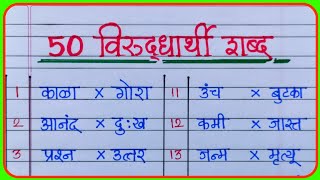 50 विरुद्धार्थी शब्द
1 काळा × गोरा 11 उंच × बुटका
2 आनंद × दुःख 12 कमी × जास्त
3 प्रश्न × उत्तर 13 जन्म × मृत्यू